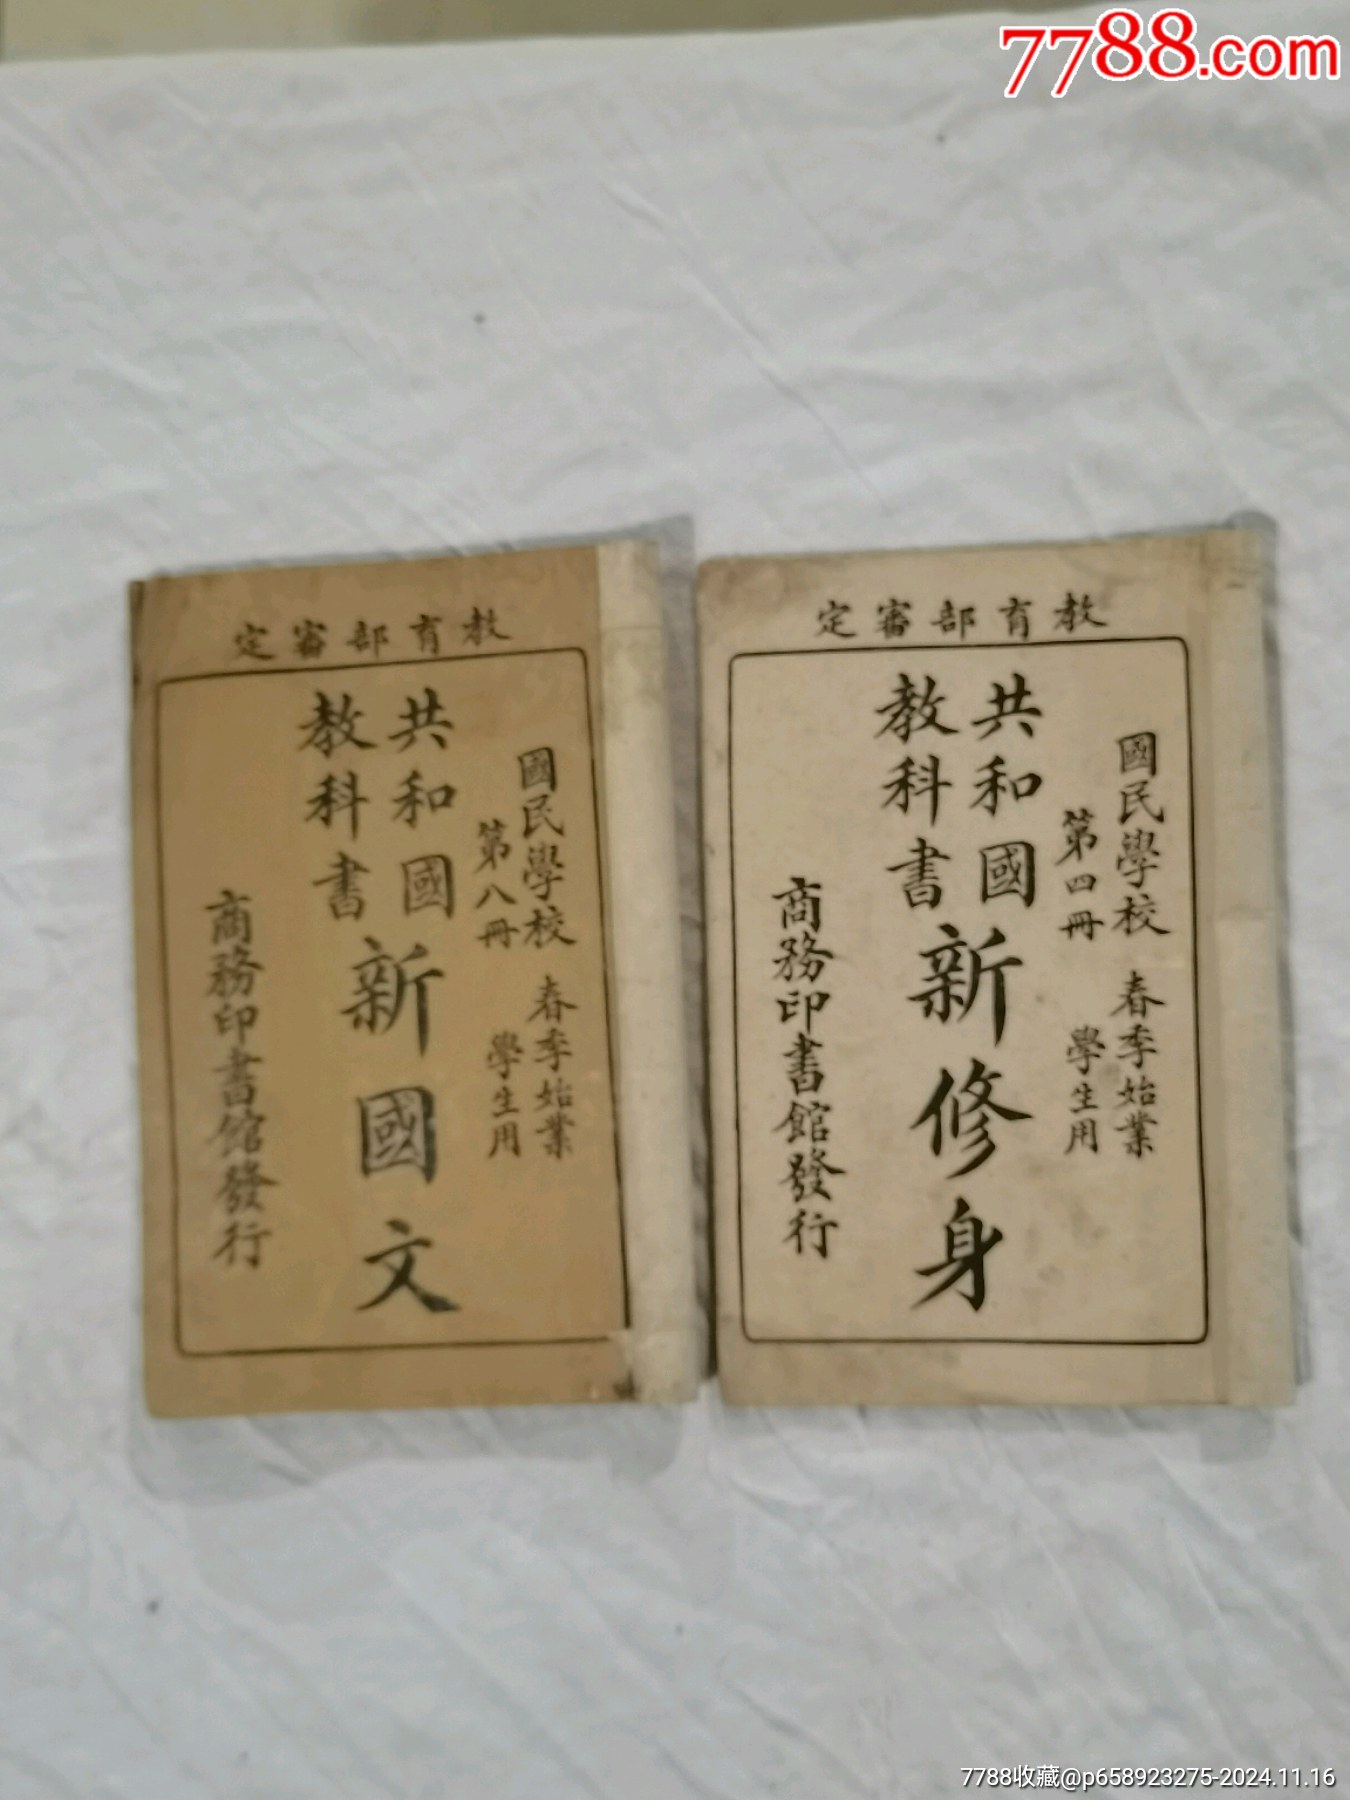 7788.com
教育部審定
國民學校 春季始業
第八冊 學生用
共和國
教科書
新國文
商務印書館發行
教育部審定
國民學校 春季始業
第四冊 學生用
共和國
教科書
新修身
商務印書館發行
7788收藏@p658923275-2024.11.16